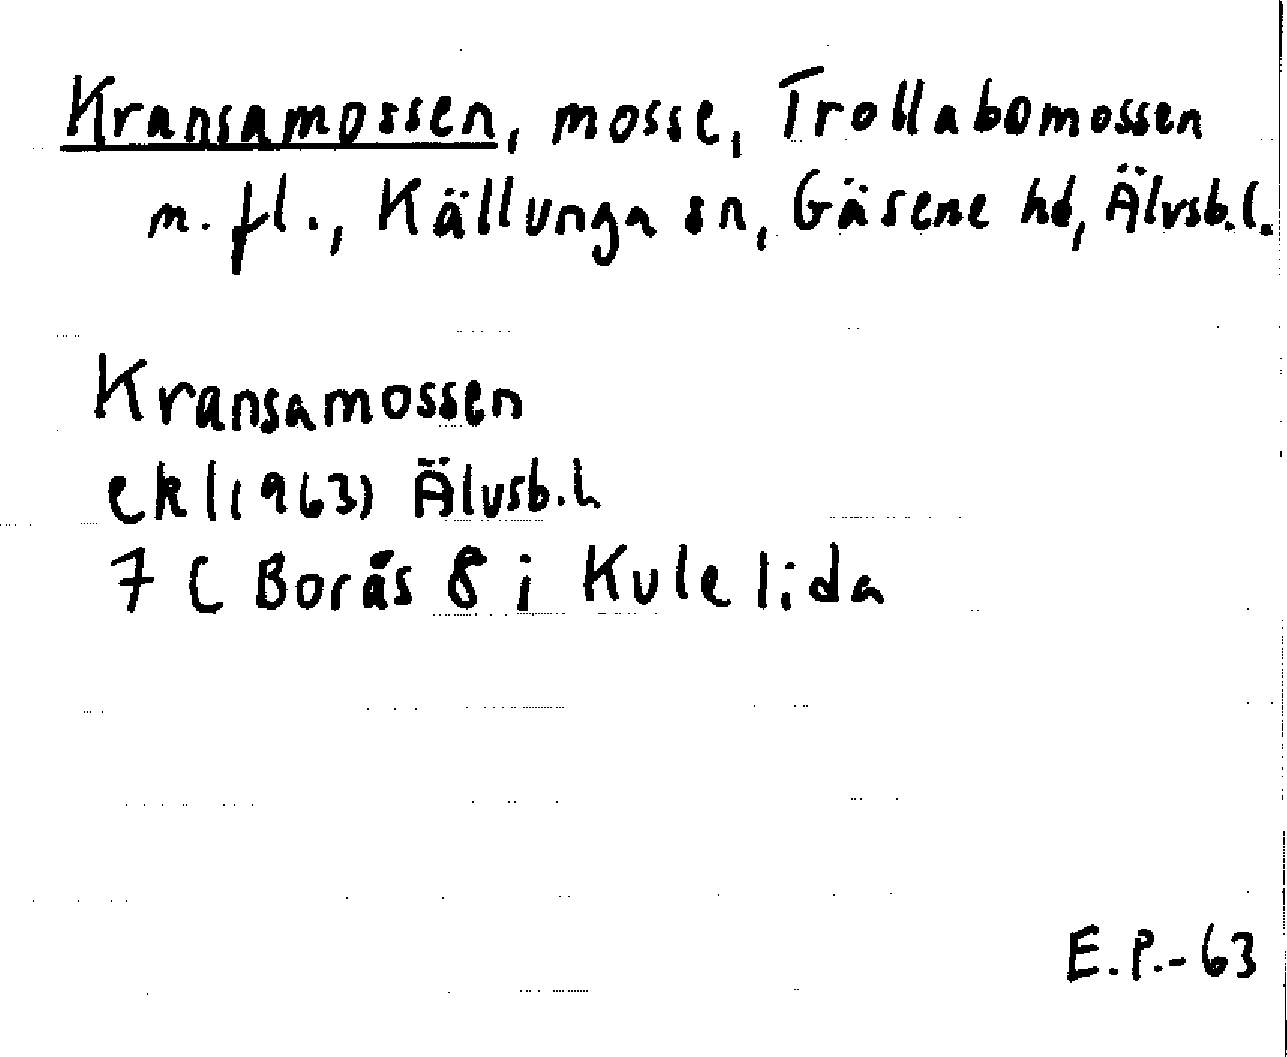 Kransamossen, mosse, Trollabomossen
m. fl., Källunga sn, Gäsene hd, Älvsb. l.
Kransamossen
ekl(1963) Älvsb. l
7 C Borås 8 i Kulelida
E.P.-63